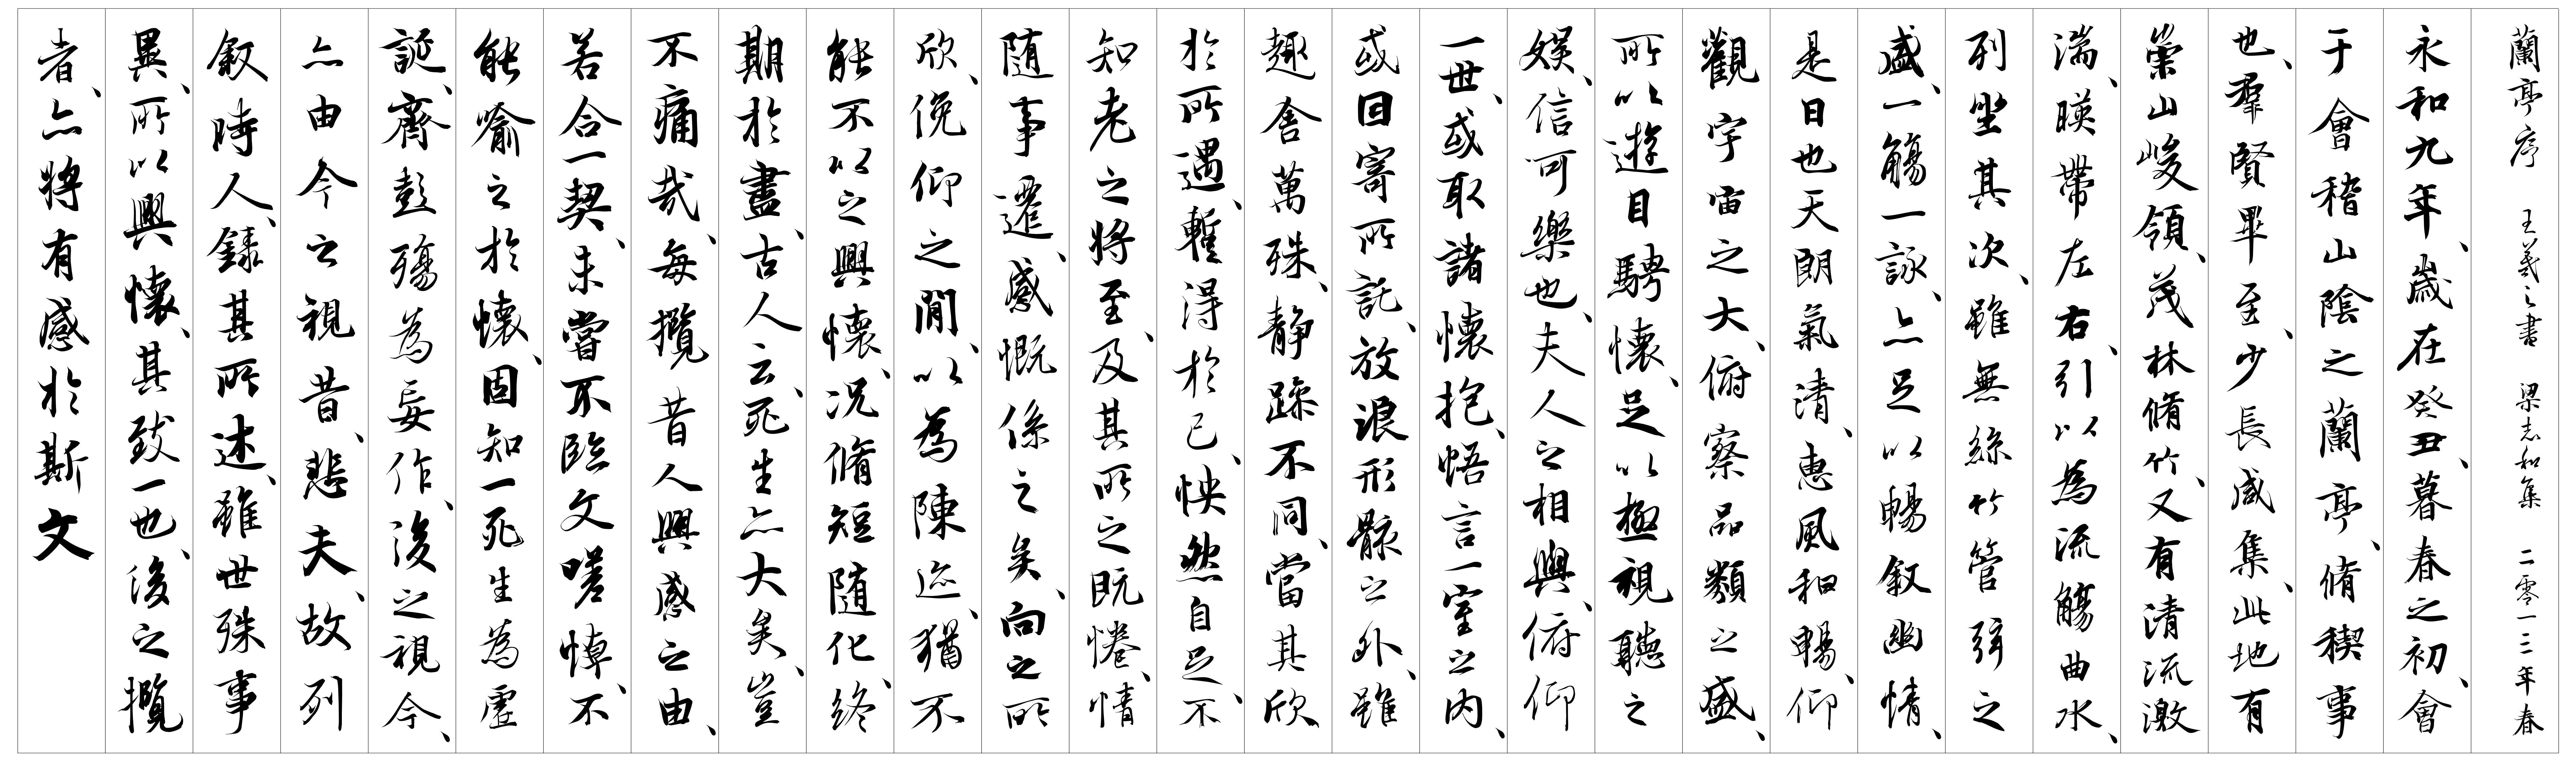 蘭亭序 王羲之書 梁志和集 二零一三年春
永和九年、歲在癸丑、暮春之初、會
于會稽山陰之蘭亭、脩稧事
也、羣賢畢至、少長咸集、此地有
崇山峻領、茂林脩竹、又有清流激
湍、暎帶左右、引以為流觴曲水、
列坐其次、雖無絲竹管弦之
盛、一觴一詠、亦足以暢敘幽情、
是日也天朗氣清、惠風和暢、仰
觀宇宙之大、俯察品類之盛、
所以遊目騁懷、足以極視聽之
娛、信可樂也、夫人之相與、俯仰
一世、或取諸懷抱、悟言一室之內、
或因寄所託、放浪形骸之外、雖
趣舍萬殊、静躁不同、當其欣
於所遇、暫得於己、怏然自足、不
知老之將至、及其所之既惓、情
随事遷、感慨係之矣、向之所
欣、俛仰之閒、以為陳迹、猶不
能不以之興懷、况脩短随化、終
期於盡、古人云、死生亦大矣、豈
不痛哉、每攬昔人興感之由、
若合一契、未嘗不臨文嗟悼、不
能喻之於懷、固知一死生為虛
誕、齊彭殤為妄作、後之視今、
亦由今之視昔、悲夫、故列
敘時人、錄其所述、雖世殊事
異、所以興懷、其致一也、後之攬
者、亦將有感於斯文